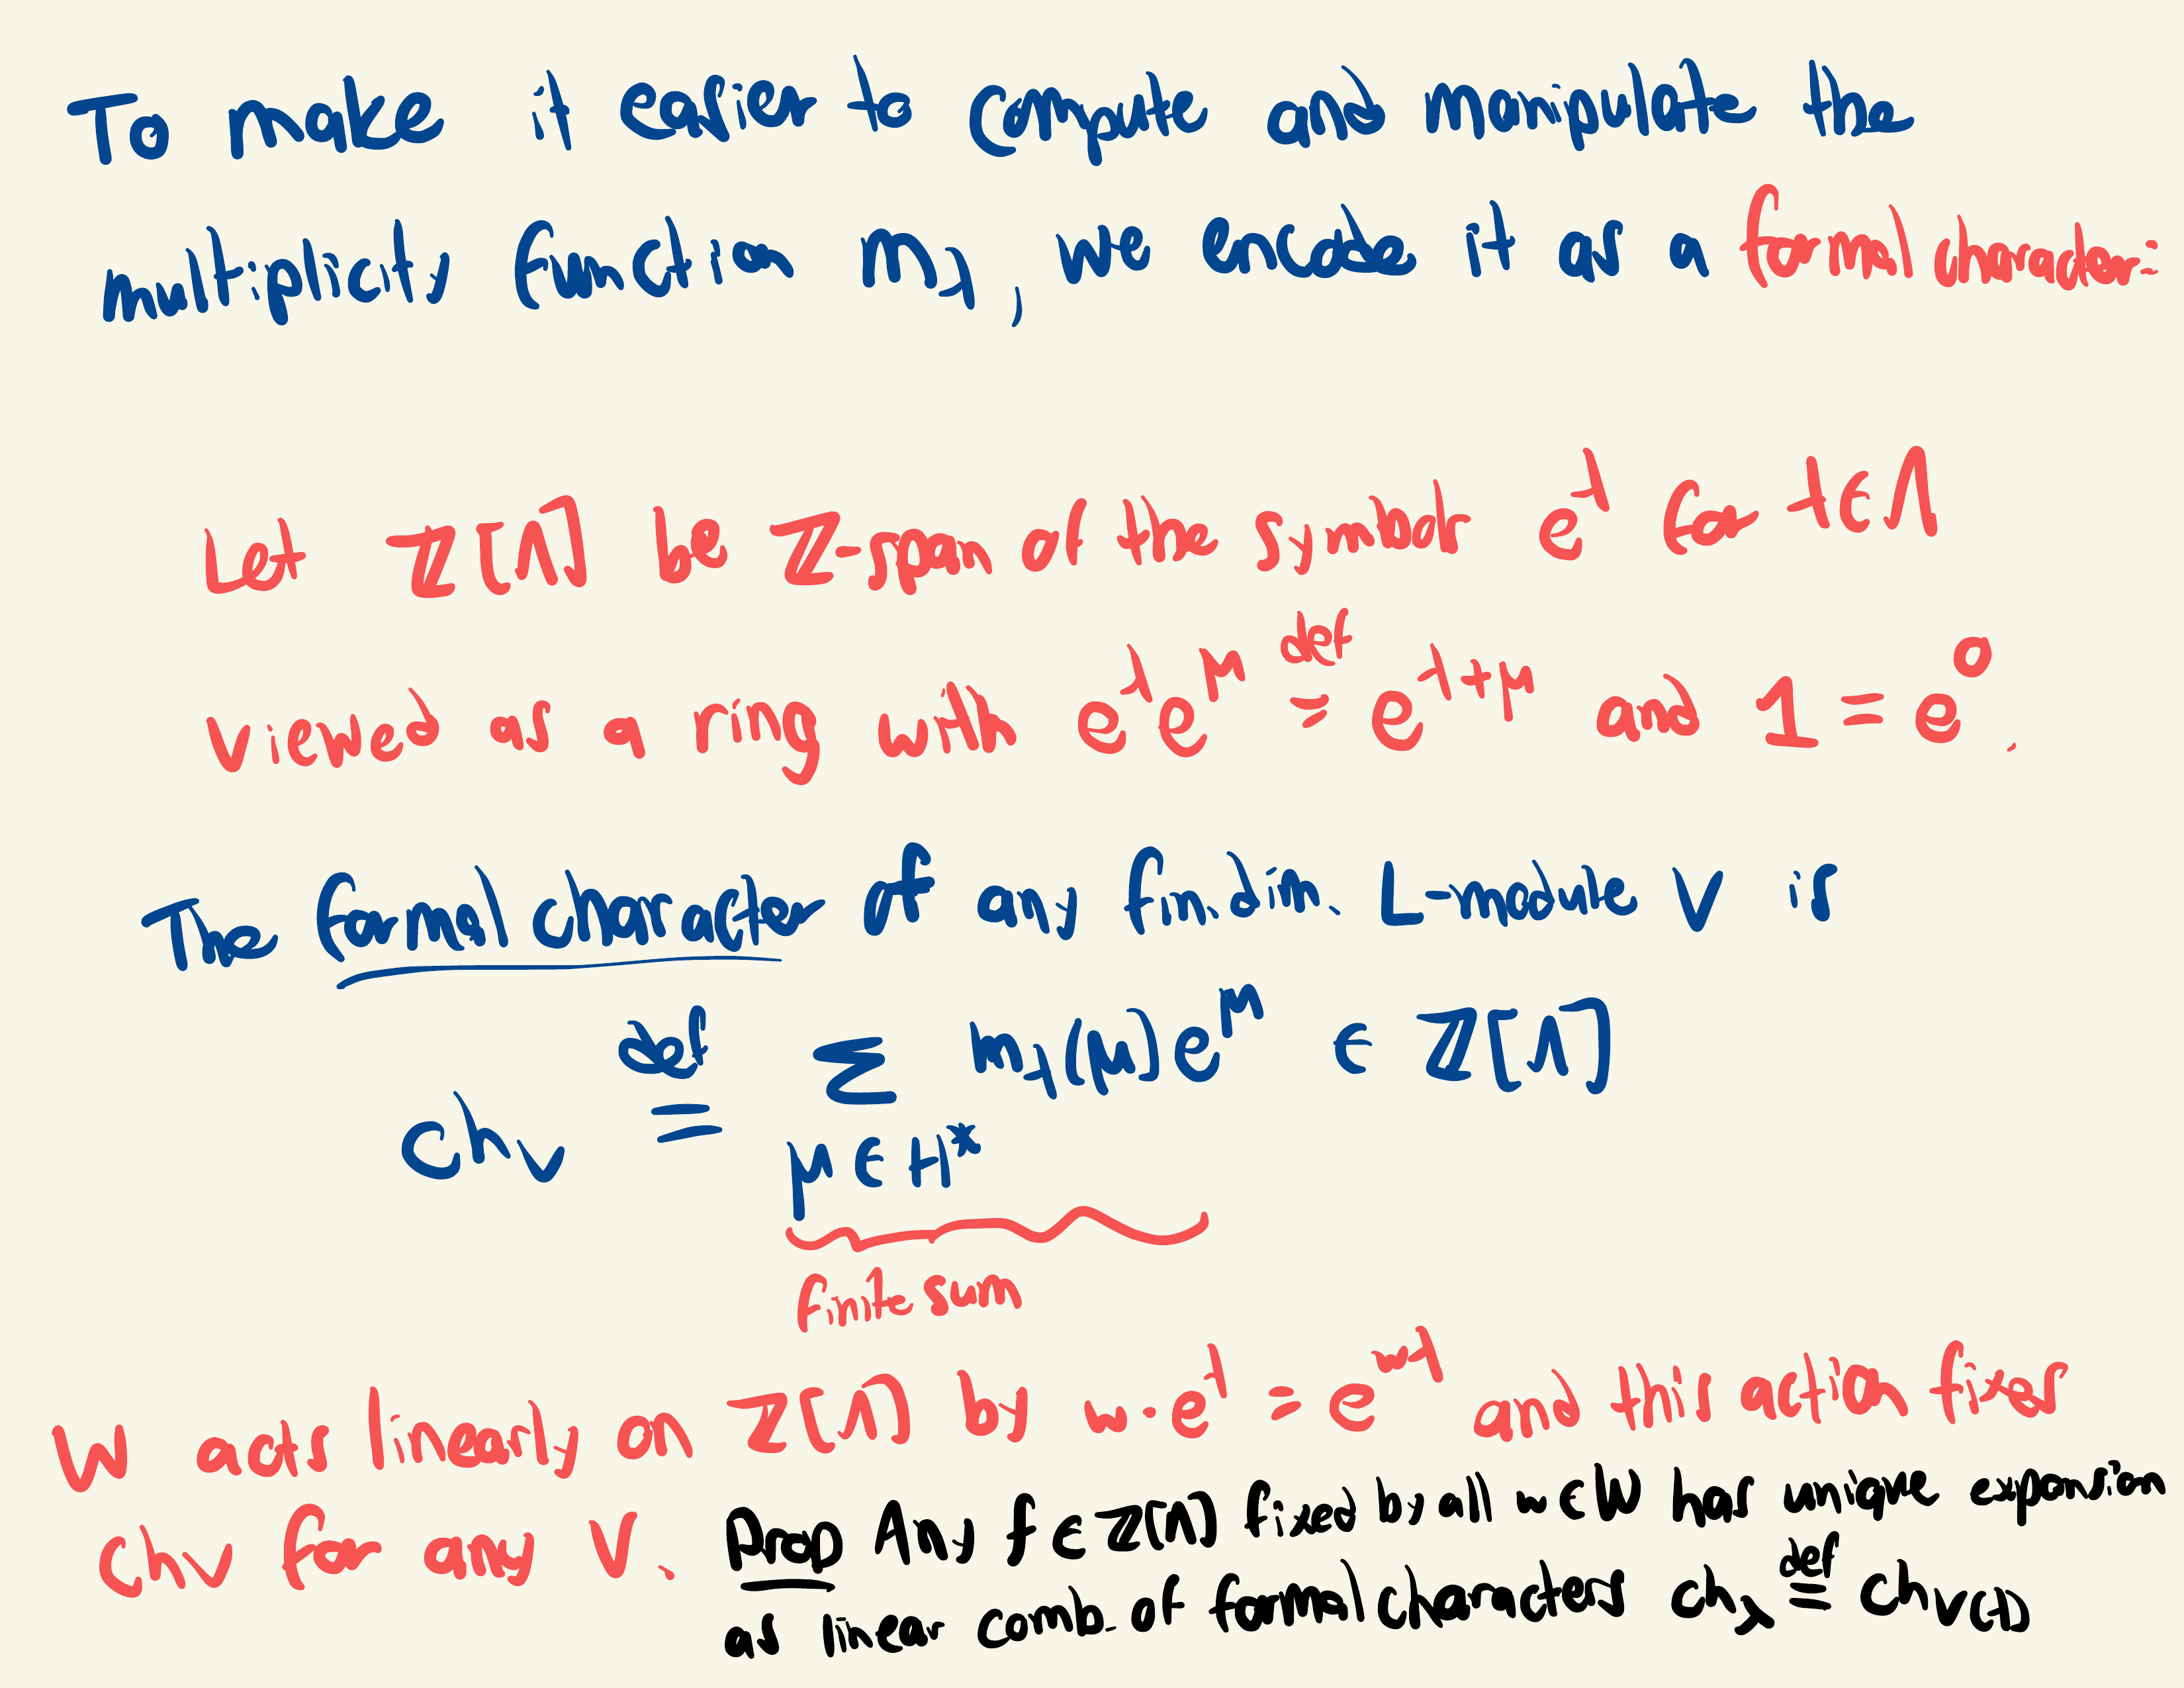 To make it easier to compute and manipulate the
multiplicity function m_λ, we encode it as a formal character:
Let ℤ[Λ] be ℤ-span of the symbols e^λ for λ∈Λ
viewed as a ring with e^λ e^μ def= e^{λ+μ} and 1 = e^0.
The formal character of any fin. dim. L-module V is
ch_V def= Σ_{μ∈H*} m_λ(μ)e^μ ∈ ℤ[Λ]
finite sum
W acts linearly on ℤ[Λ] by w·e^λ = e^{wλ} and this action fixes
ch_V for any V.
Prop Any f ∈ ℤ[Λ] fixed by all w∈W has unique expansion
as linear comb. of formal characters ch_λ def= ch_{V(λ)}